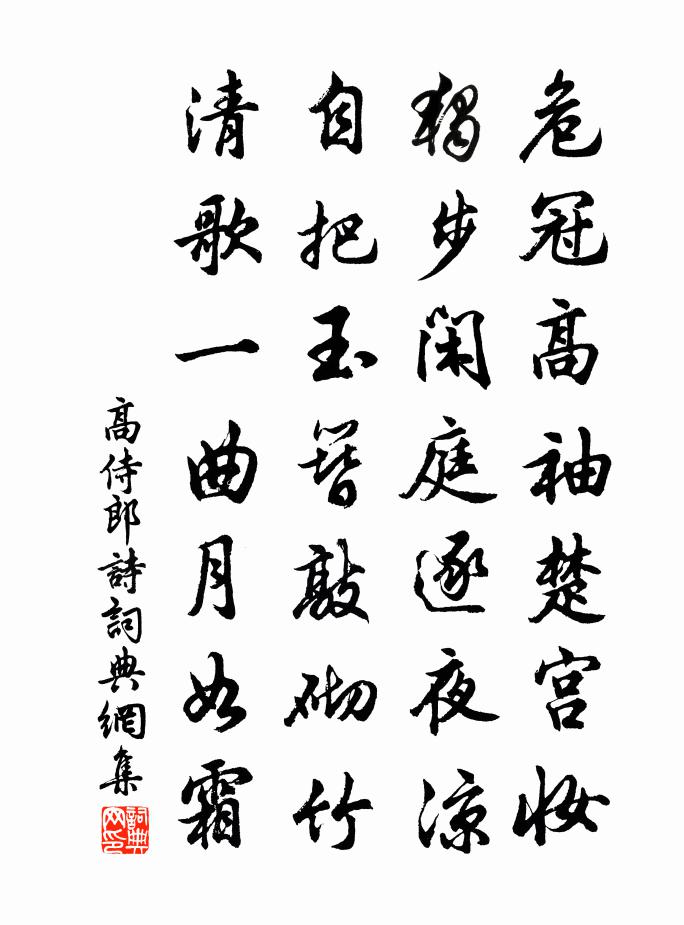 危冠高袖楚宫妆
獨步閑庭逐夜凉
自把玉簪敲砌竹
清歌一曲月如霜
高侍郎詩詞典網集
詞典网印